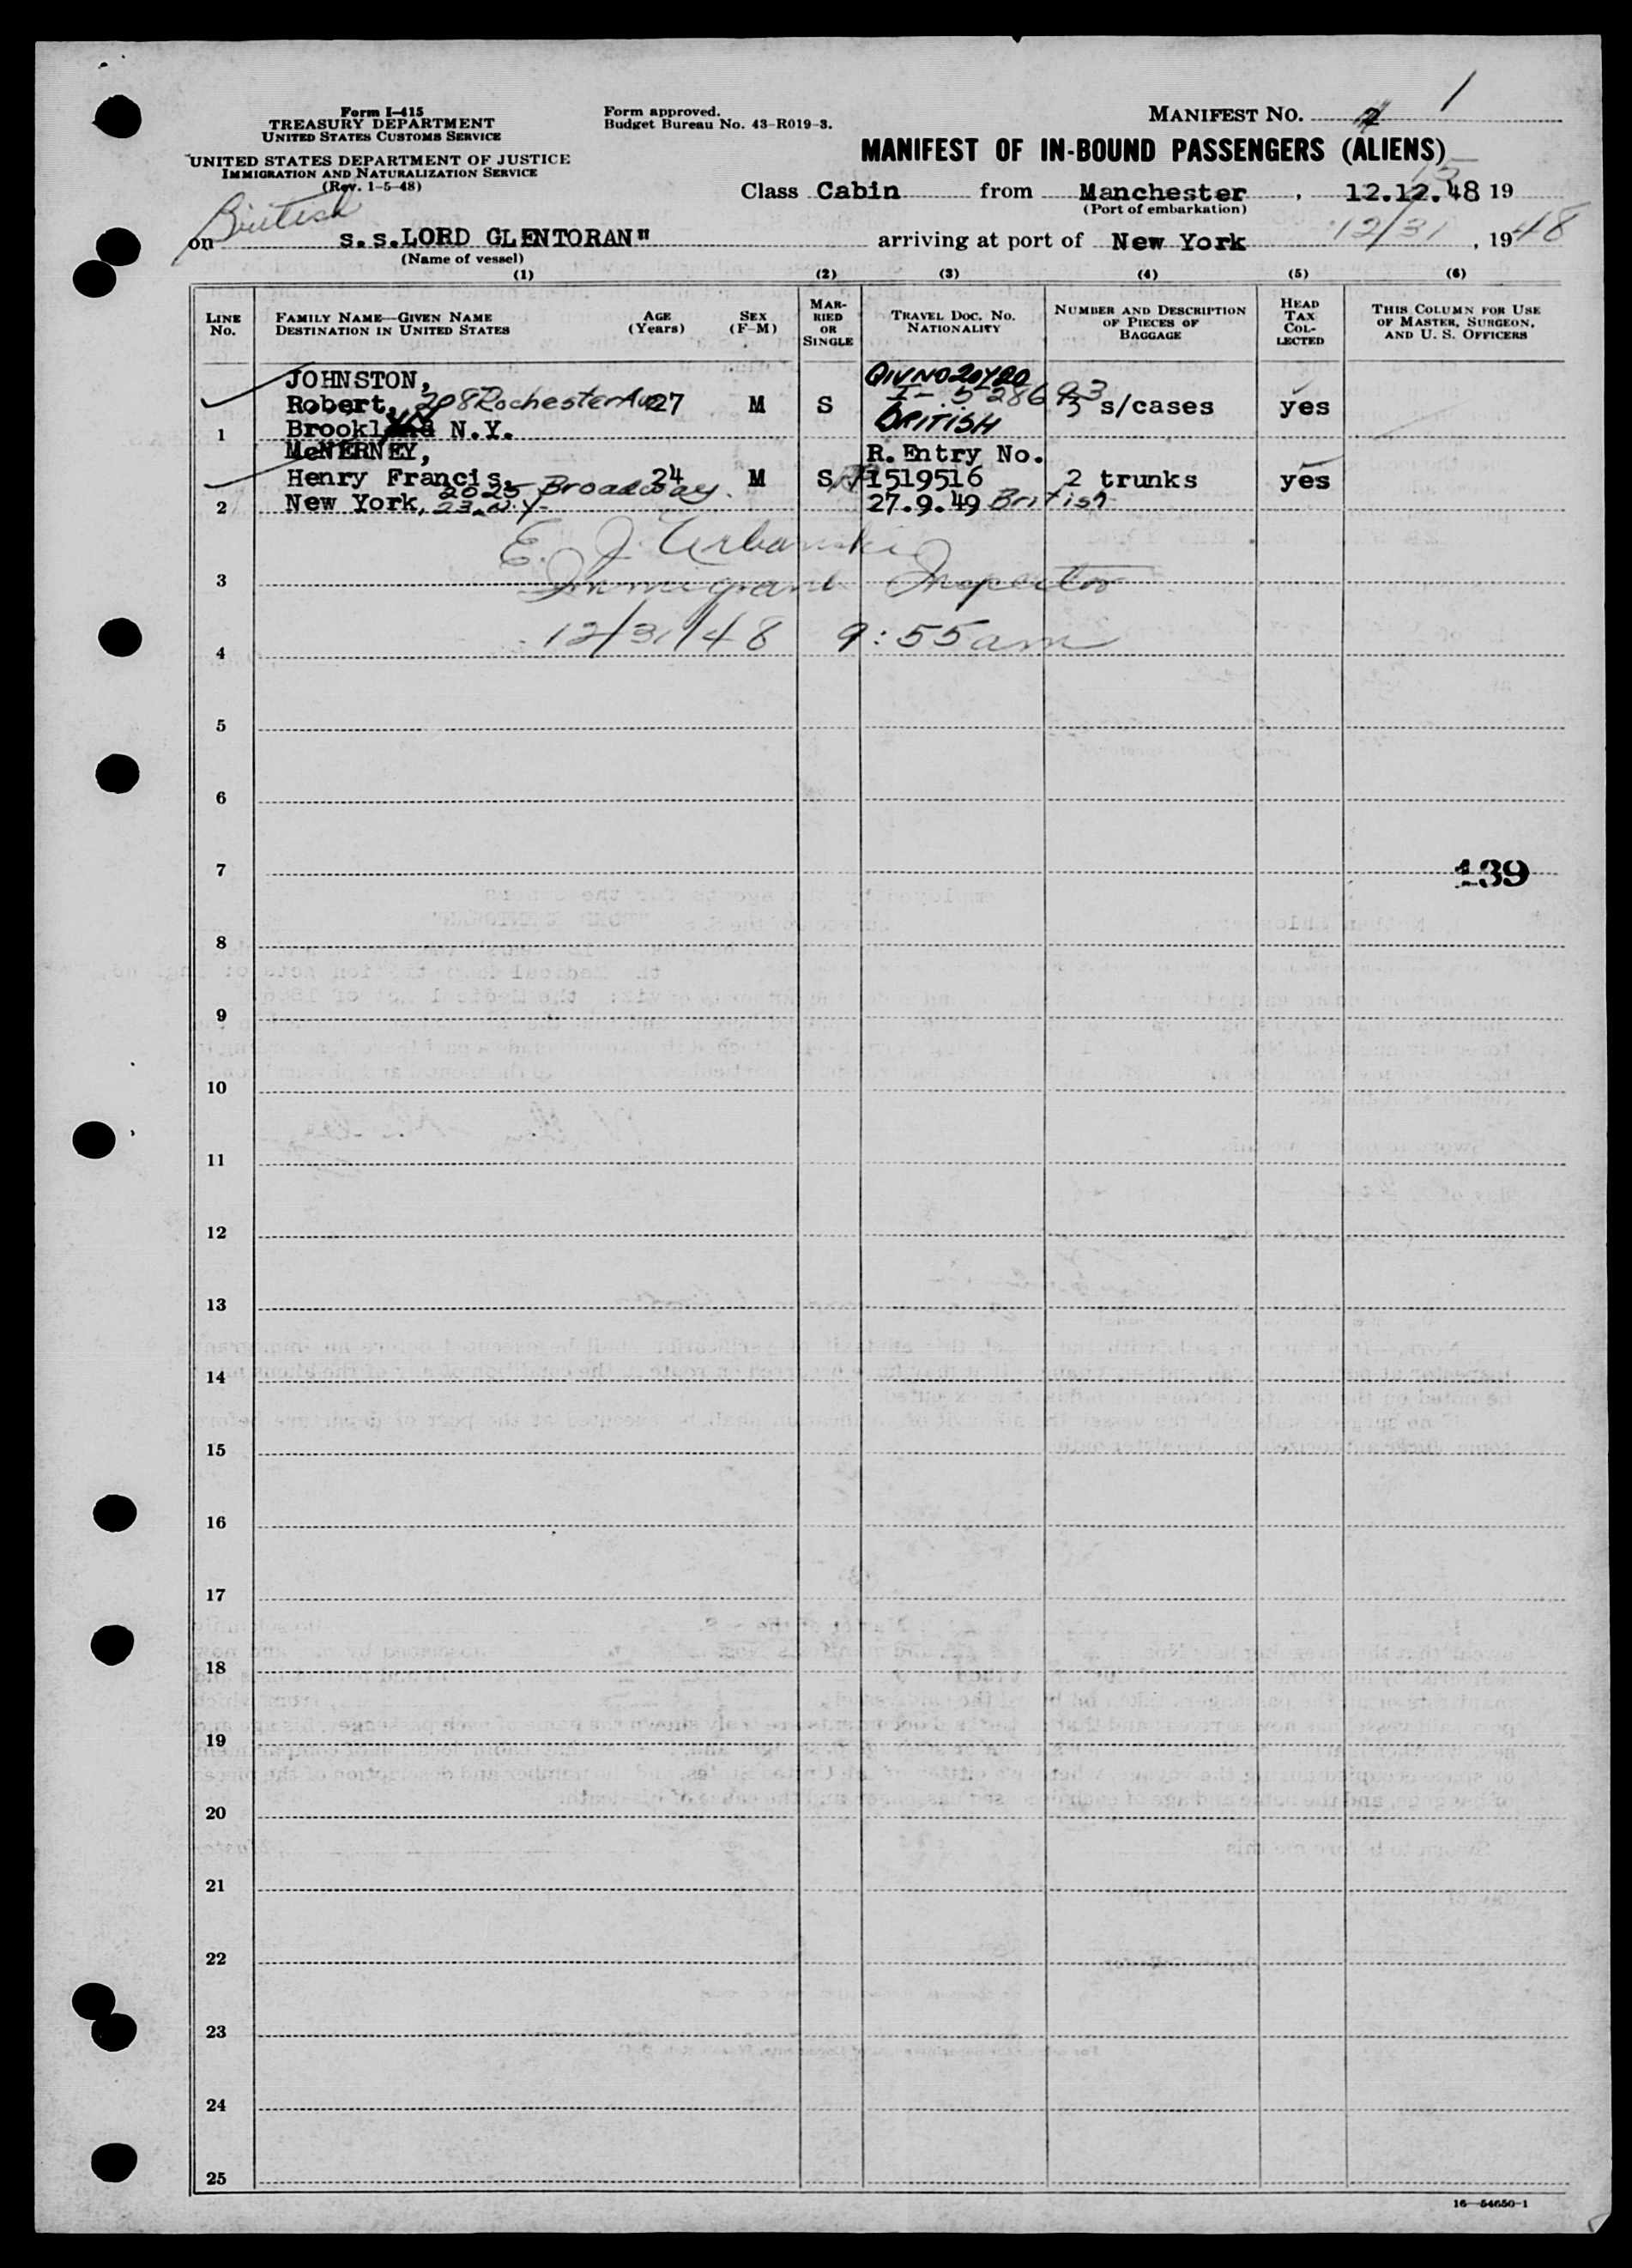 Form I-415
TREASURY DEPARTMENT
UNITED STATES CUSTOMS SERVICE
UNITED STATES DEPARTMENT OF JUSTICE
IMMIGRATION AND NATURALIZATION SERVICE
(Rev. 1-5-48)
Form approved.
Budget Bureau No. 43-R019-3.
1
MANIFEST NO. 2
MANIFEST OF IN-BOUND PASSENGERS (ALIENS)
15
Class Cabin from Manchester, 12.12.48 19
(Port of embarkation)
British
on s.s.LORD GLENTORAN" arriving at port of New York 12/31, 1948
(Name of vessel)
(1) (2) (3) (4) (5) (6)
LINE No. FAMILY NAME—GIVEN NAME DESTINATION IN UNITED STATES AGE (Years) SEX (F-M) MARRIED OR SINGLE TRAVEL DOC. NO. NATIONALITY NUMBER AND DESCRIPTION OF PIECES OF BAGGAGE HEAD TAX COLLECTED THIS COLUMN FOR USE OF MASTER, SURGEON, AND U. S. OFFICERS
JOHNSTON,
Robert, 208 Rochester Ave 27 M S I- 528693 3 s/cases yes
1 N.Y. BRITISH
McNERNEY, R.Entry No.
Henry Francis, 24 M S 1519516 2 trunks yes
2025 Broadway.
2 New York, 23.N.Y. 27.9.49 British
E. J. Urbanski
3 Immigrant Inspector
4 12/31/48 9:55am
5
6
7 139
8
9
10
11
12
13
14
15
16
17
18
19
20
21
22
23
24
25
16—54650-1